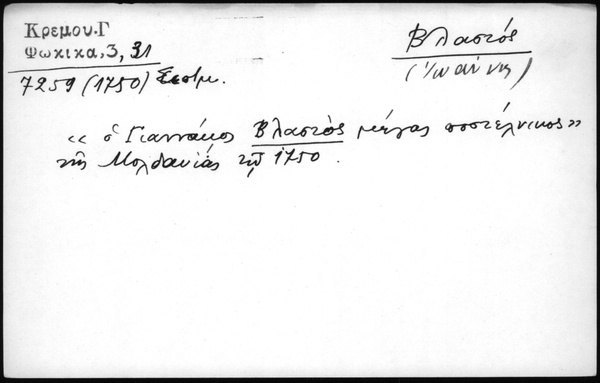 Κρεμου.Γ
Φωκικα,3, 31
7259 (1750) Σεπτμ.
Βλαστός
(Ἰωάννης)
« ὁ Γιαννάκος Βλαστὸς μέγας ποστέλνικος »
τῆς Μολδαυίας τῷ 1750.